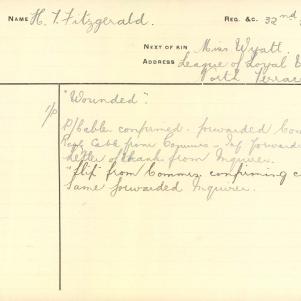 NAME H. T. Fitzgerald. REG. &C. 32nd
NEXT OF KIN Miss Wyatt.
ADDRESS League of Loyal
North Terrace
"Wounded".
Cable confirmed. forwarded
Reply Cable from Commrs - Inf forwarded
Letter of thank from Inquirer.
"flip" from Commrs confirming
Same forwarded Inquirer.